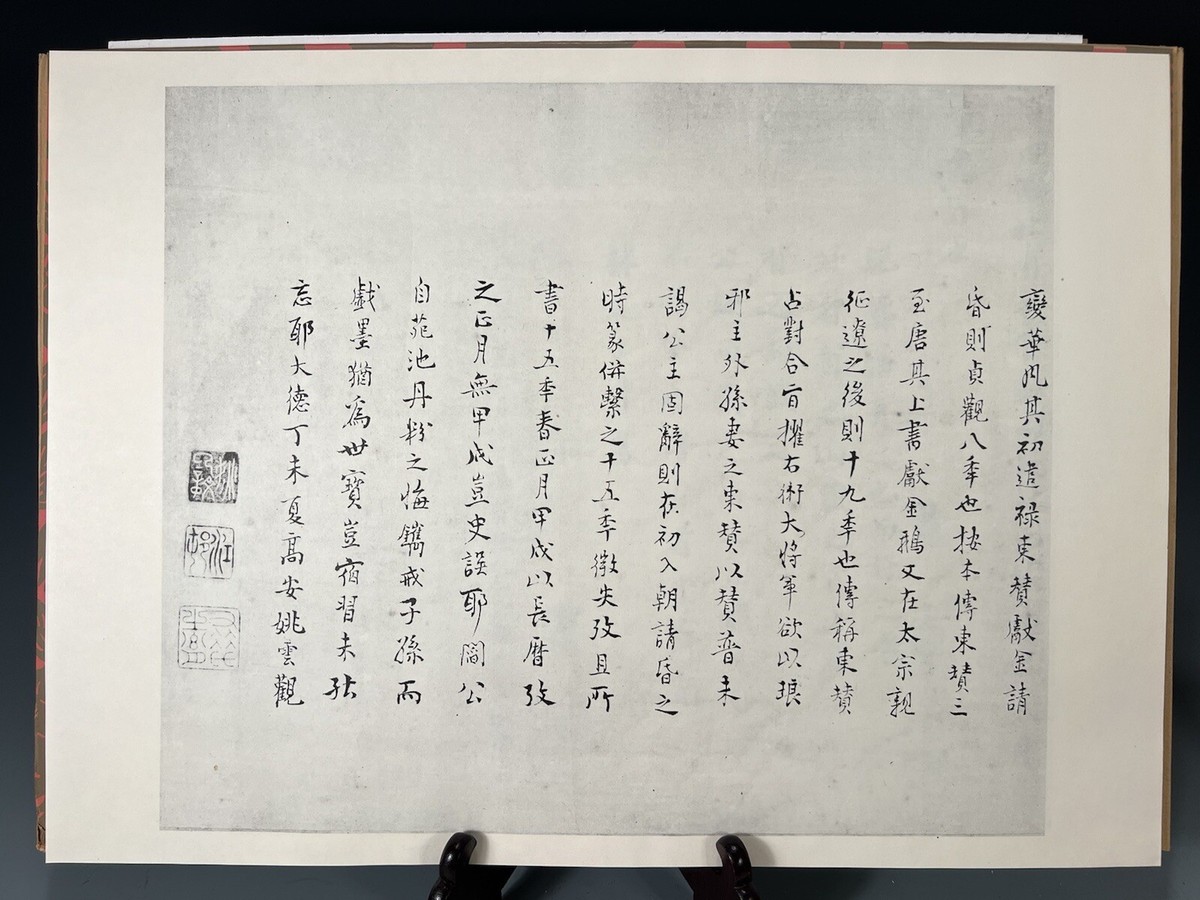 變華風其初遣祿東贊獻金請
昏則貞觀八秊也按本傳東贊三
至唐其上書獻金鵝又在太宗親
征遼之後則十九秊也傳稱東贊
占對合旨擢右衛大將軍欲以琅
邪主外孫妻之東贊以贊普未
謁公主固辭則在初入朝請昏之
時篆併繫之十五秊微失攷且所
書十五秊春正月甲戌以長曆攷
之正月無甲戌豈史誤耶閻公
自苑池丹粉之悔鐫戒子孫而
戲墨猶爲世寶豈宿習未能
忘耶大德丁未夏高安姚雲觀
江邨